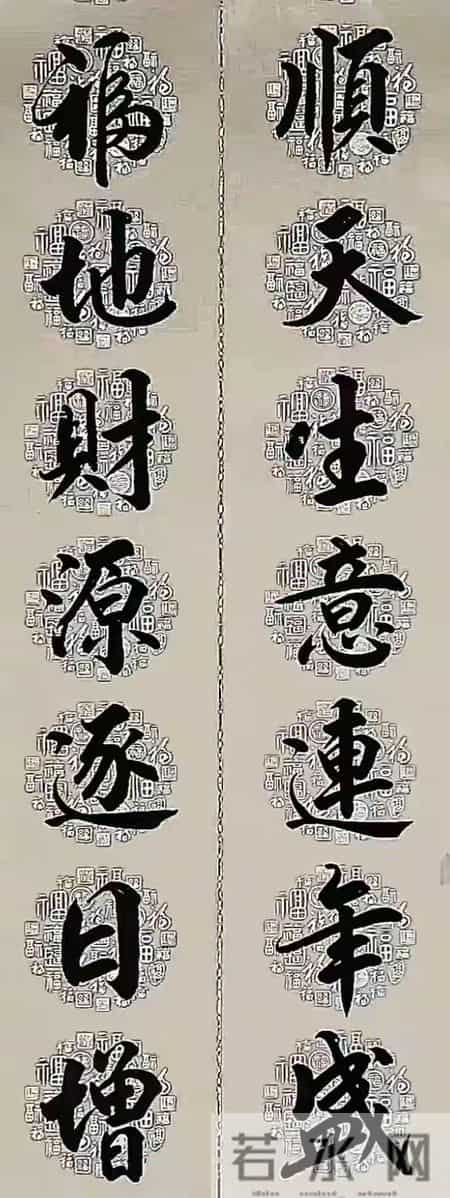 順天生意連年盛
福地財源逐日增
若水网